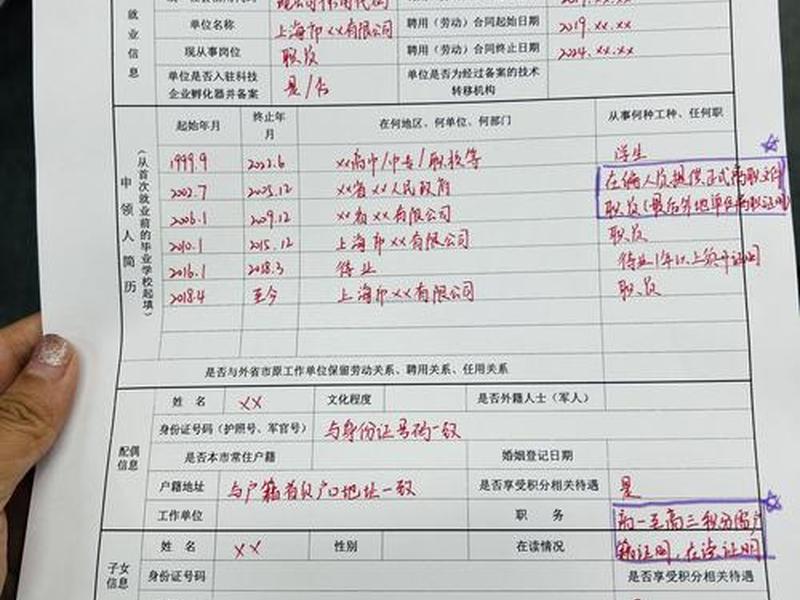 就业信息
单位名称 上海市××有限公司 聘用（劳动）合同起始日期 2019.××.××
现从事岗位 职员 聘用（劳动）合同终止日期 2024.××.××
单位是否入驻科技企业孵化器并备案 是/否 单位是否为经过备案的技术转移机构
申领人简历（从首次就业前的毕业学校起填）
起始年月 终止年月 在何地区、何单位、何部门 从事何种工种、任何职
1999.9 2002.6 ××高中/中专/职校等 学生
2002.7 2005.12 ××省××人民政府 在编人员提供正式离职文件
2006.1 2009.12 ××省××有限公司 职员（最后外地单位离职证明）
2010.1 2015.12 上海市××有限公司 职员
2016.1 2018.3 待业 待业1年以上须开证明
2018.4 至今 上海市××有限公司 职员
是否与外省市原工作单位保留劳动关系、聘用关系、任用关系
配偶信息
姓名 ×× 文化程度 是否外籍人士（军人）
身份证号码（护照号、军官号） 与身份证号码一致
是否本市常住户籍 婚姻登记日期
户籍地址 与户籍首页户口地址一致 是否享受积分相关待遇 是
工作单位 职务 高一至高三积分需户
子女信息
姓名 ×× 性别 在读情况 籍证明，在读证明
身份证号码 是否享受积分相关待遇